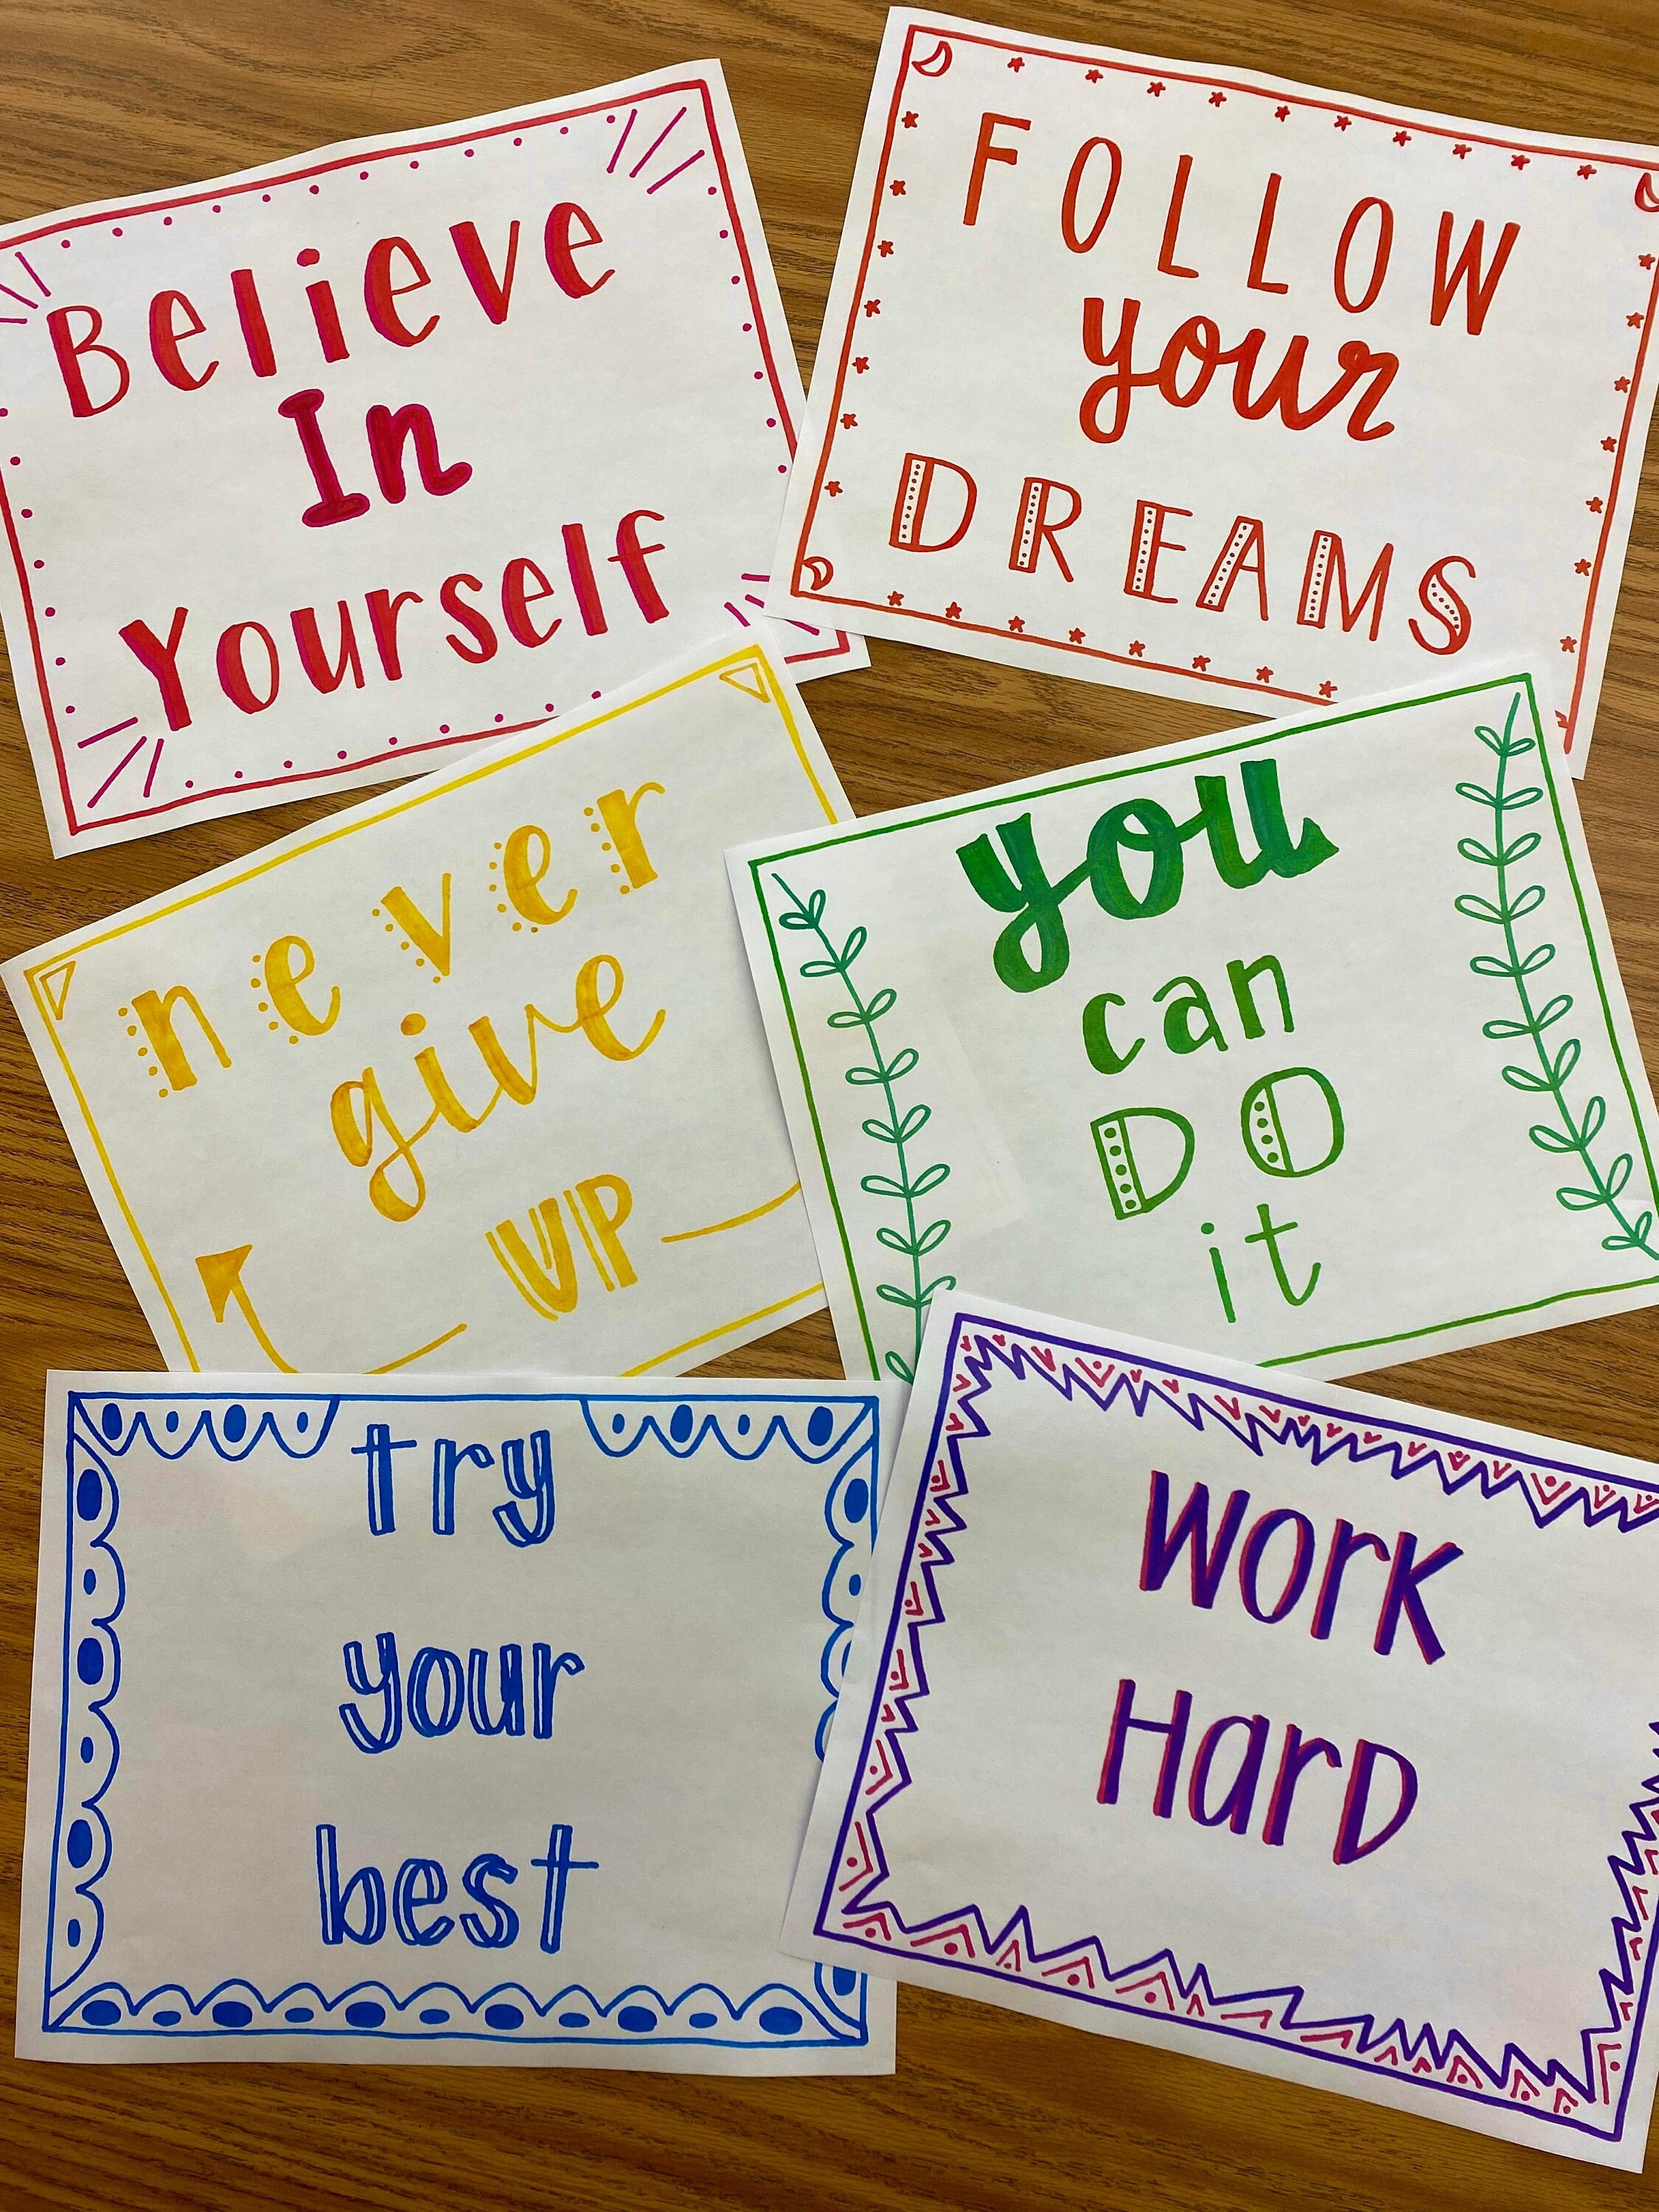 Believe
In
Yourself
FOLLOW
your
DREAMS
never
give
UP
you
can
DO
it
try
your
best
Work
HarD